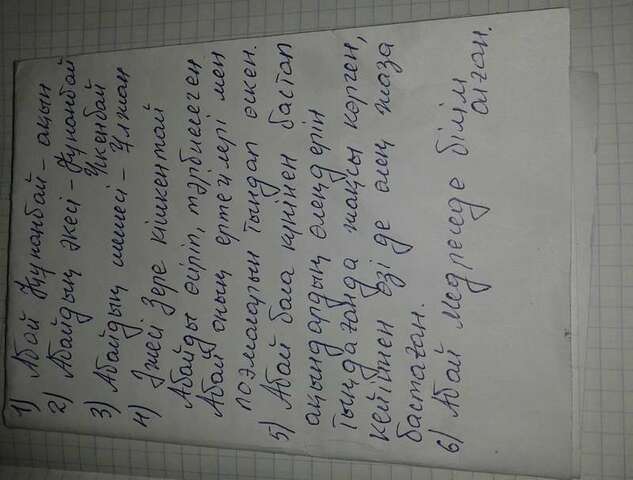 1) Абай Құнанбай - ақын
2) Абайдың әкесі - Құнанбай
Үкенбай
3) Абайдың шешесі - Ұлжан
4) Әжесі Зере кішкентай
Абайды өсіріп, тәрбиелеген
Абай оның ертегілері мен
поэмаларын тыңдап өскен.
5) Абай бала күнінен бастап
ақындардың өлеңдерін
тыңдағанда жақсы көрген,
кейіннен өзі де өлең жаза
бастаған.
6) Абай медреседе білім
алған.